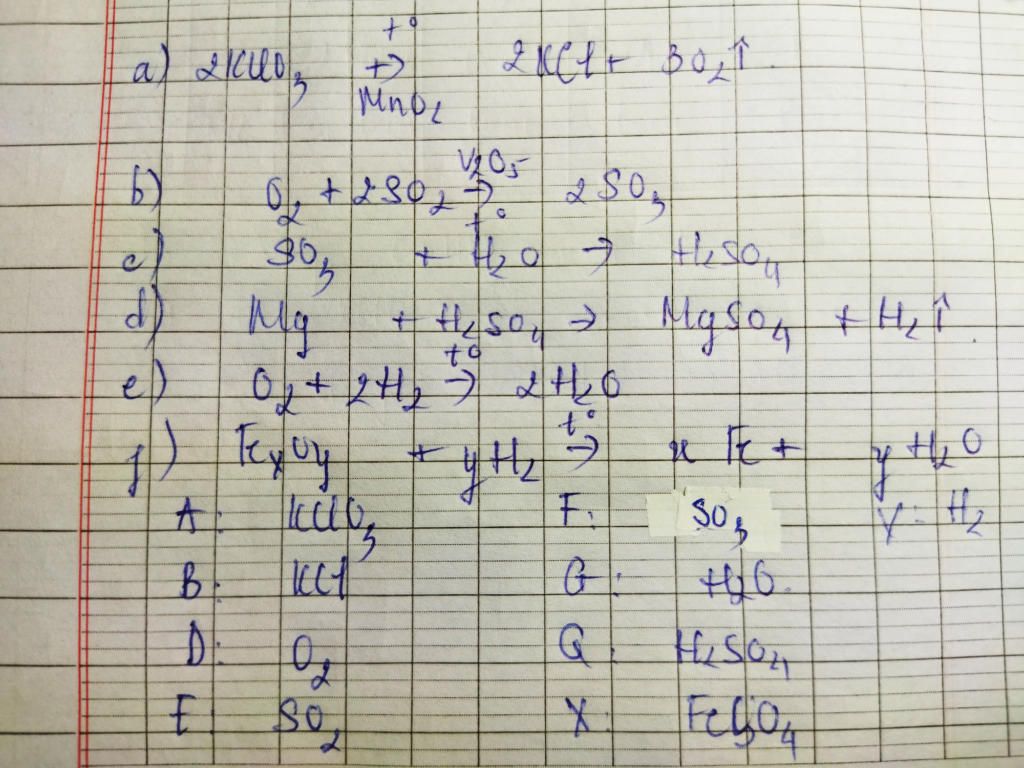 a) 2KClO3 t° → MnO2 2KCl + 3O2↑
b) O2 + 2SO2 V2O5 → t° 2SO3
c) SO3 + H2O → H2SO4
d) Mg + H2SO4 → MgSO4 + H2↑
e) O2 + 2H2 t° → 2H2O
f) FexOy + yH2 t° → xFe + yH2O
A: KClO3 F: SO3 Y: H2
B: KCl G: H2O.
D: O2 Q: H2SO4
E: SO2 X: